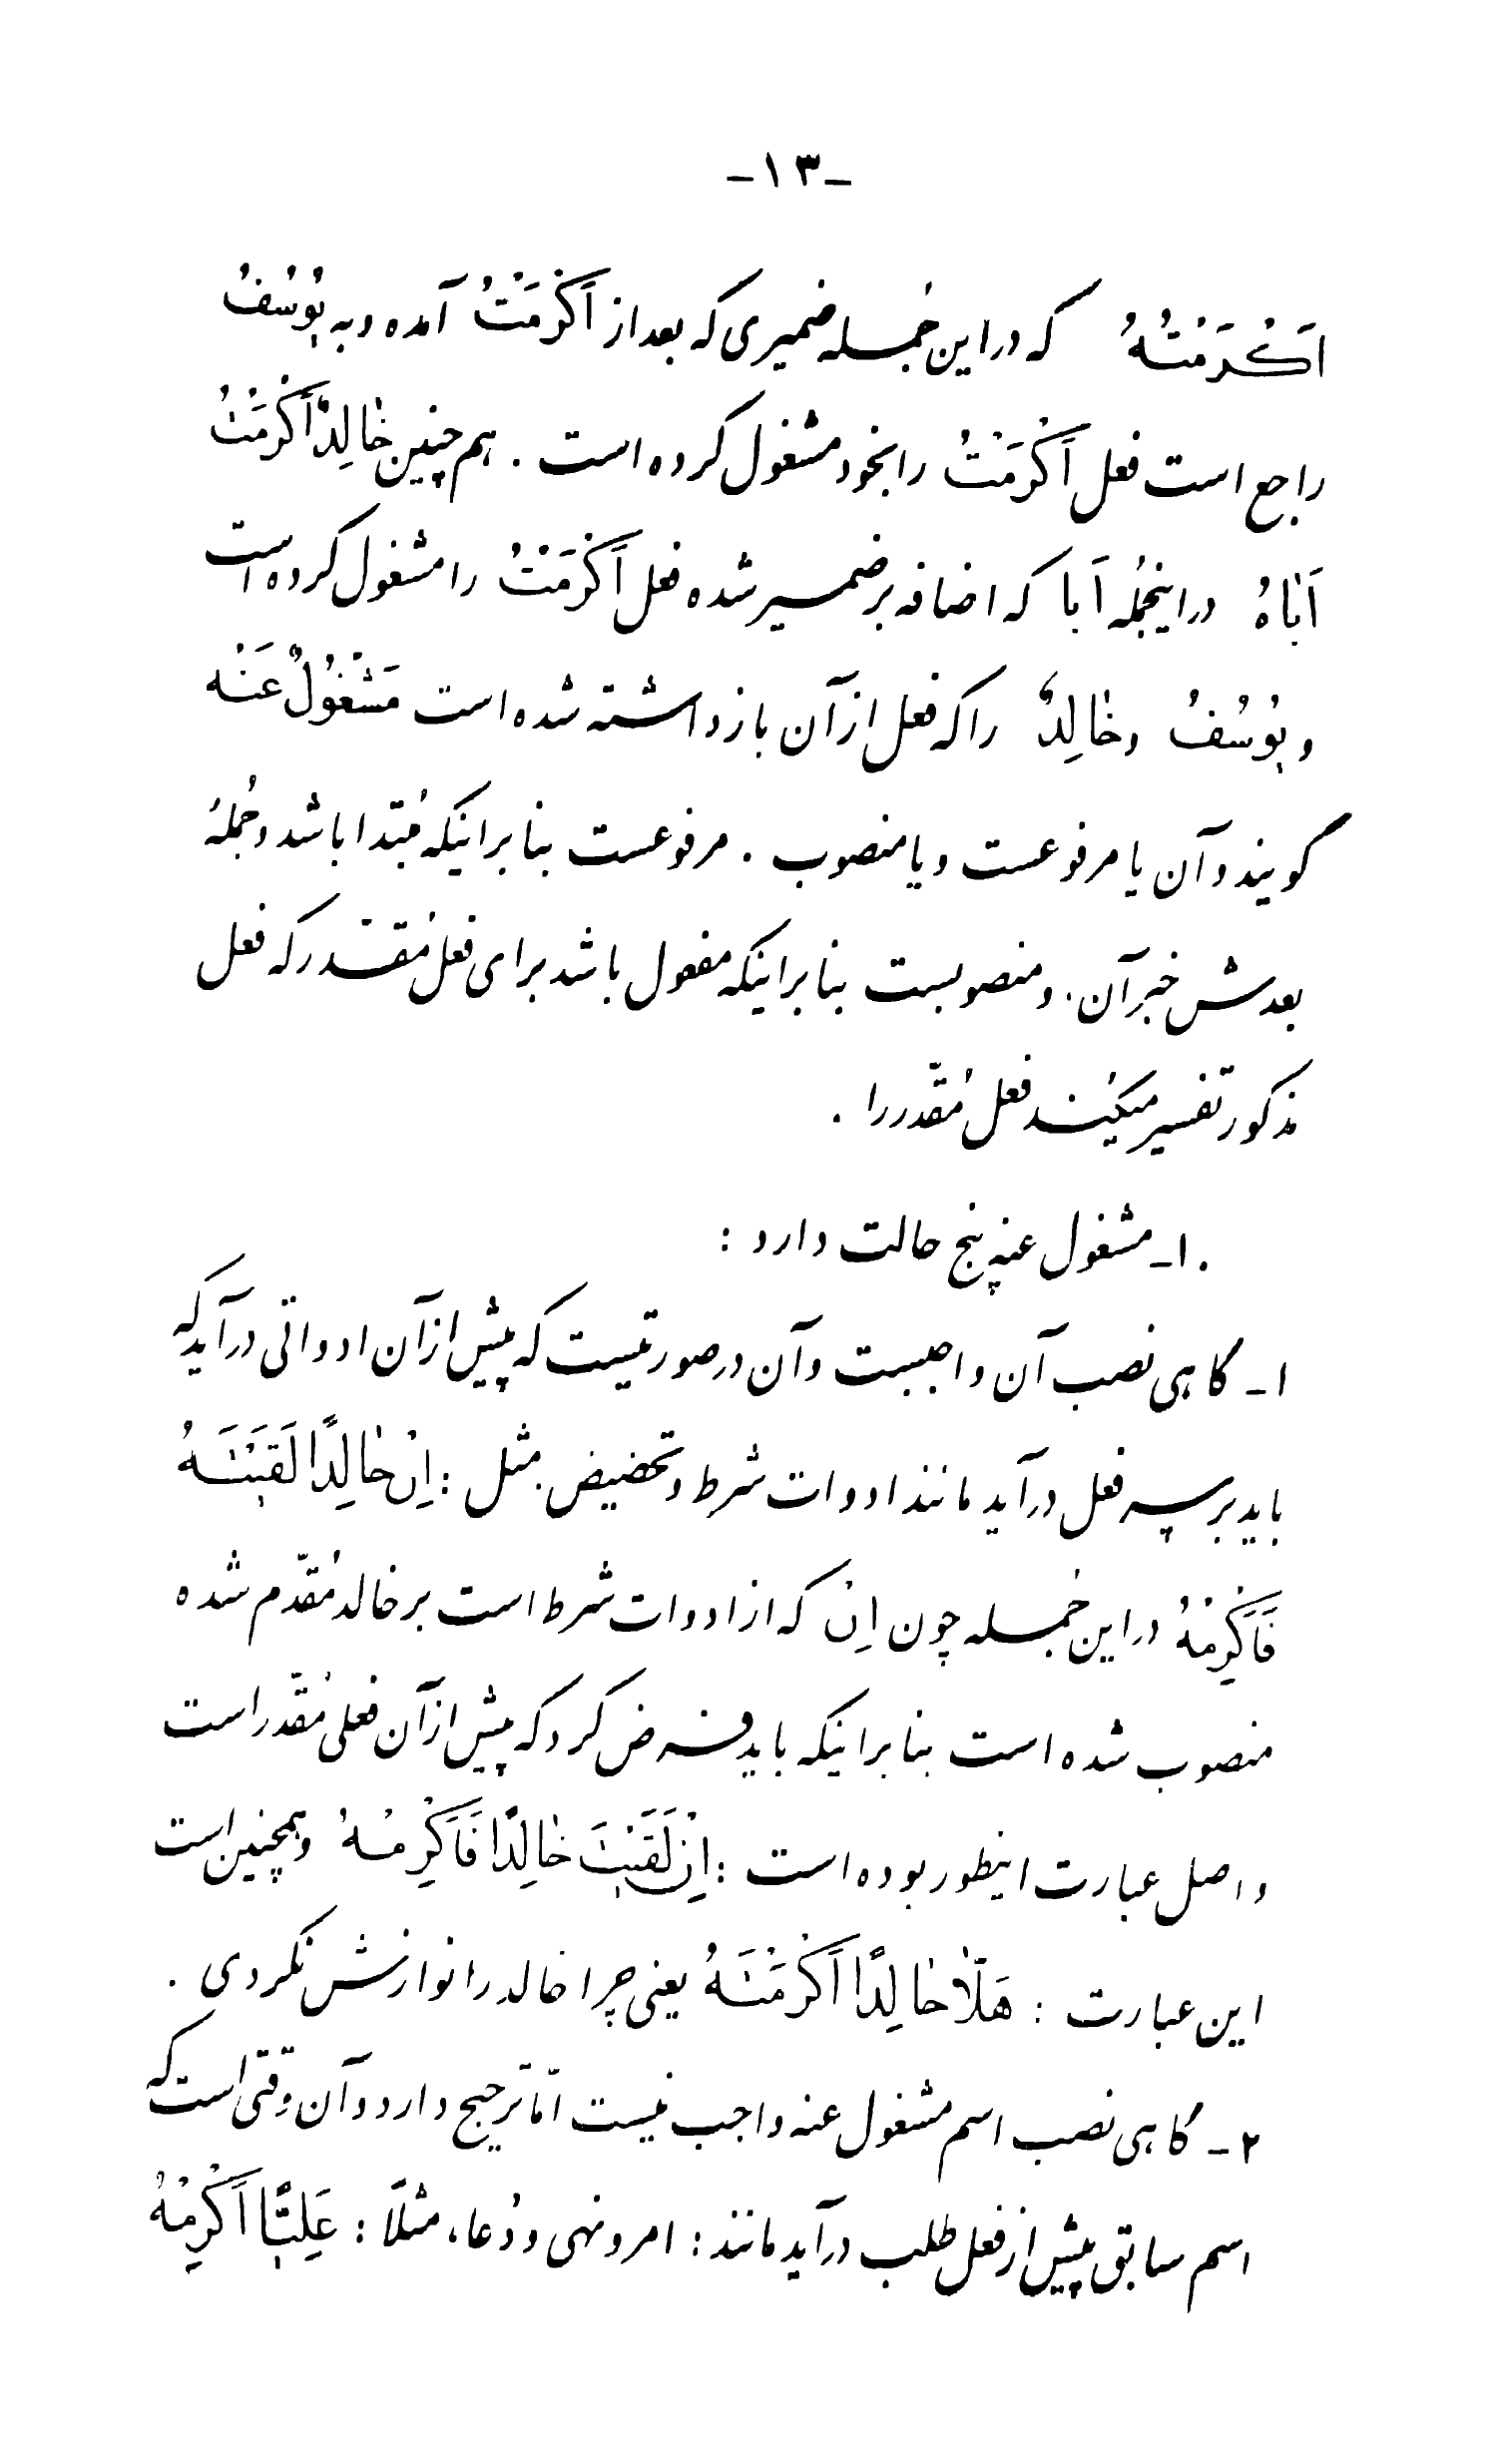 -۱۳-
اَکْرَمْتُهُ که در این جُمله ضمیری که بعد از اَکْرَمْتُ آمده و به یُوسُفُ
راجع است فعل اَکْرَمْتُ را بخود مشغول کرده است . هم چنین خٰالِدٌ اَکْرَمْتُ
اَبٰاهُ در اینجُمله اَبا که اضافه بر ضمیر شده فعل اَکْرَمْتُ را مشغول کرده است
و یُوسُفُ و خٰالِدٌ را که فعل از آن باز داشته شده است مَشْغُولٌ عَنْه
گویند و آن یا مرفوعست و یا منصوب . مرفوعست بنا بر اینکه مُبتدا باشد و جُملهٔ
بعدش خبر آن . و منصوبست بنا بر اینکه مفعول باشد برای فعل مُقدر که فعل
مذکور تفسیر میکُند فعل مُقدّر را .
۱۰- مشغول عنه پنج حالت دارد :
۱- گاهی نصب آن واجبست و آن در صورتیست که پیش از آن ادواتی در آید که
باید بر سر فعل در آید مانند ادوات شرط و تحضیض . مثل : اِنْ خٰالِدًا لَقیٖتَهُ
فَاَکْرِمْهُ در این جُمله چون اِنْ که از ادوات شرط است بر خالد مُقدّم شده
منصوب شده است بنا بر اینکه باید فرض کرد که پیش از آن فعلی مُقدّر است
و اصل عبارت اینطور بوده است : اِنْ لَقَیٖتَ خٰالِدًا فَاَکْرِمْهُ و همچنین است
این عبارت : هَلّاٰ خٰالِدًا اَکْرَمْتَهُ یعنی چرا خالد را نوازش نکردی .
۲- گاهی نصب اسم مشغول عنه واجب نیست امّا ترجیح دارد و آن وقتی است که
اسم سابق پیش از فعل طلب در آید مانند : امر و نهی و دُعا، مثلاً : عَلِیًّا اَکْرِمْهُ